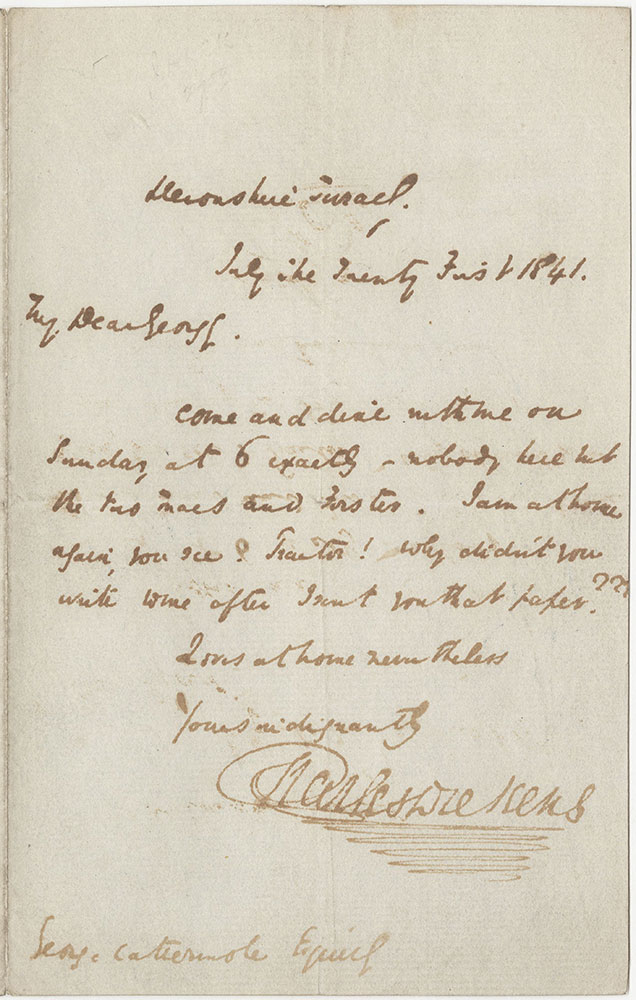 Devonshire Terrace.
July The Twenty First 1841.
My Dear George.
Come and dine with me on
Sunday, at 6 exactly – nobody here but
the two Macs and Forster. I am at home
again, you see! Traitor! Why didn't you
write to me after I sent you that paper.???
Loves at home nevertheless
Yours indignantly
Charles Dickens
George Cattermole Esquire